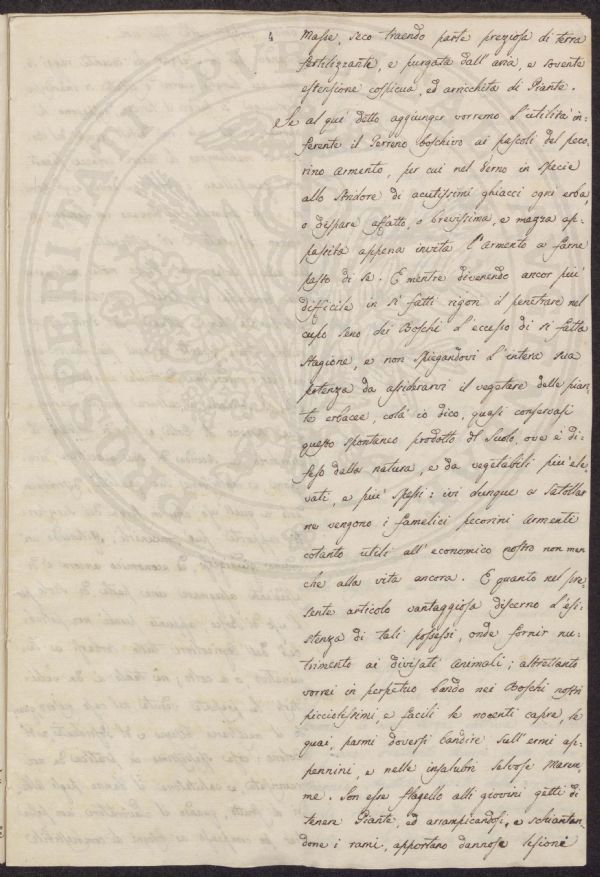 4
Masse, seco traendo parte preziosa di terra
fertilizzante, e purgata dall' aria, e sovente
estensione cospicua, ed arricchita di Piante.
Se al qui detto aggiunger vorremo l'utilità in=
ferente il Terreno boschivo ai pascoli del peco=
rino armento, per cui nel Verno in specie
allo Stridore di acutissimi ghiacci ogni erba,
o dispare affatto, o brevissima, e mazza ap=
passita appena invita l'armento a farne
pasto di se. E mentre divenendo ancor più
difficile in sì fatti rigori il penetrare nel
cupo seno dei Boschi l'eccesso di sì fatta
Stagione, e non spiegandovi l'intera sua
potenza da assiderarvi il vegetare delle pian=
te erbacee, colà io dico, quasi conservasi
questo spontaneo prodotto del Suolo, ove è di=
feso dalla natura, e da vegetabili più ele=
vati, e più spessi: ivi dunque a Satollar=
ne vengono i famelici pecorini armenti
cotanto utili all' economico nostro non men
che alla vita ancora. E quanto nel pre=
sente articolo vantaggiosa discerno l'esi=
stenza di tali possessi, onde fornir nu=
trimento ai divisati animali; altrettanto
vorrei in perpetuo bando nei Boschi nostri
picciolissimi, e facili le nocenti capre, le
quai, parmi doversi bandire sull' ermi ap=
pennini, e nelle insalubri selvose Marem=
me. Son esse flagello alli giovini getti di
tenere Piante, ed arrampicandosi, e schiantan=
done i rami, apportano dannose lesioni